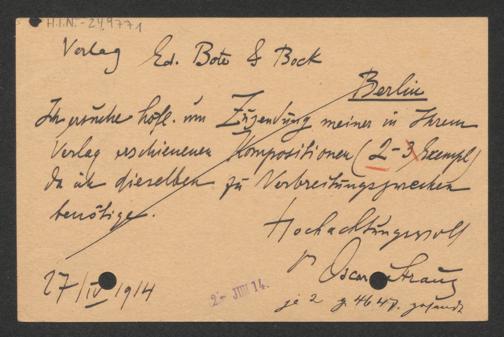 H.I.N.-249771
Verlag Ed. Bote & Bock
Berlin
Ich ersuche höfl. um Zusendung meiner in Ihrem
Verlag erschienenen Kompositionen (2-3 Exempl)
da ich dieselben zu Verbreitungszwecken
benötige.
Hochachtungsvoll
Oscar Straus
27/IV 1914
2- JUN 14.
je 2 gesandt